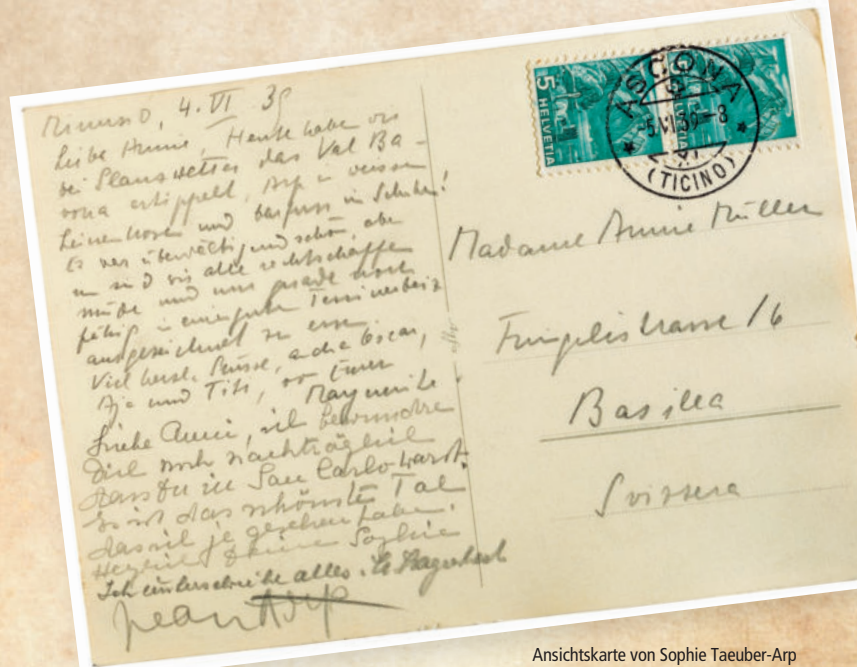 Minusio, 4. VI 39
Liebe Annie, Heute haben wir
bei Glanzwetter das Val Ba-
vona ertippelt, Arp in weissen
Leinenhosen und barfuss in Schuhen!
Es war überwältigend schön, aber
nun sind wir alle rechtschaffen
müde und nur gerade noch
fähig in einem guten Tessinerbeiz
ausgezeichnet zu essen.
Viel herzl. Grüsse, an die Oscar,
Aja und Titi, von Eurer
Marguerite
Liebe Anni, ich bewundre
Dich noch nachträglich
dass Du in San Carlo warst.
Es ist das schönste Tal
das ich je gesehen habe.
Herzlich Deine Sophie
Ich unterschreibe alles. Hagenbach
Jean Arp
5 HELVETIA
HELVETIA
ASCONA
5.VI.39-8
(TICINO)
Madame Annie Müller
16
Basilea
Svizzera
Ansichtskarte von Sophie Taeuber-Arp